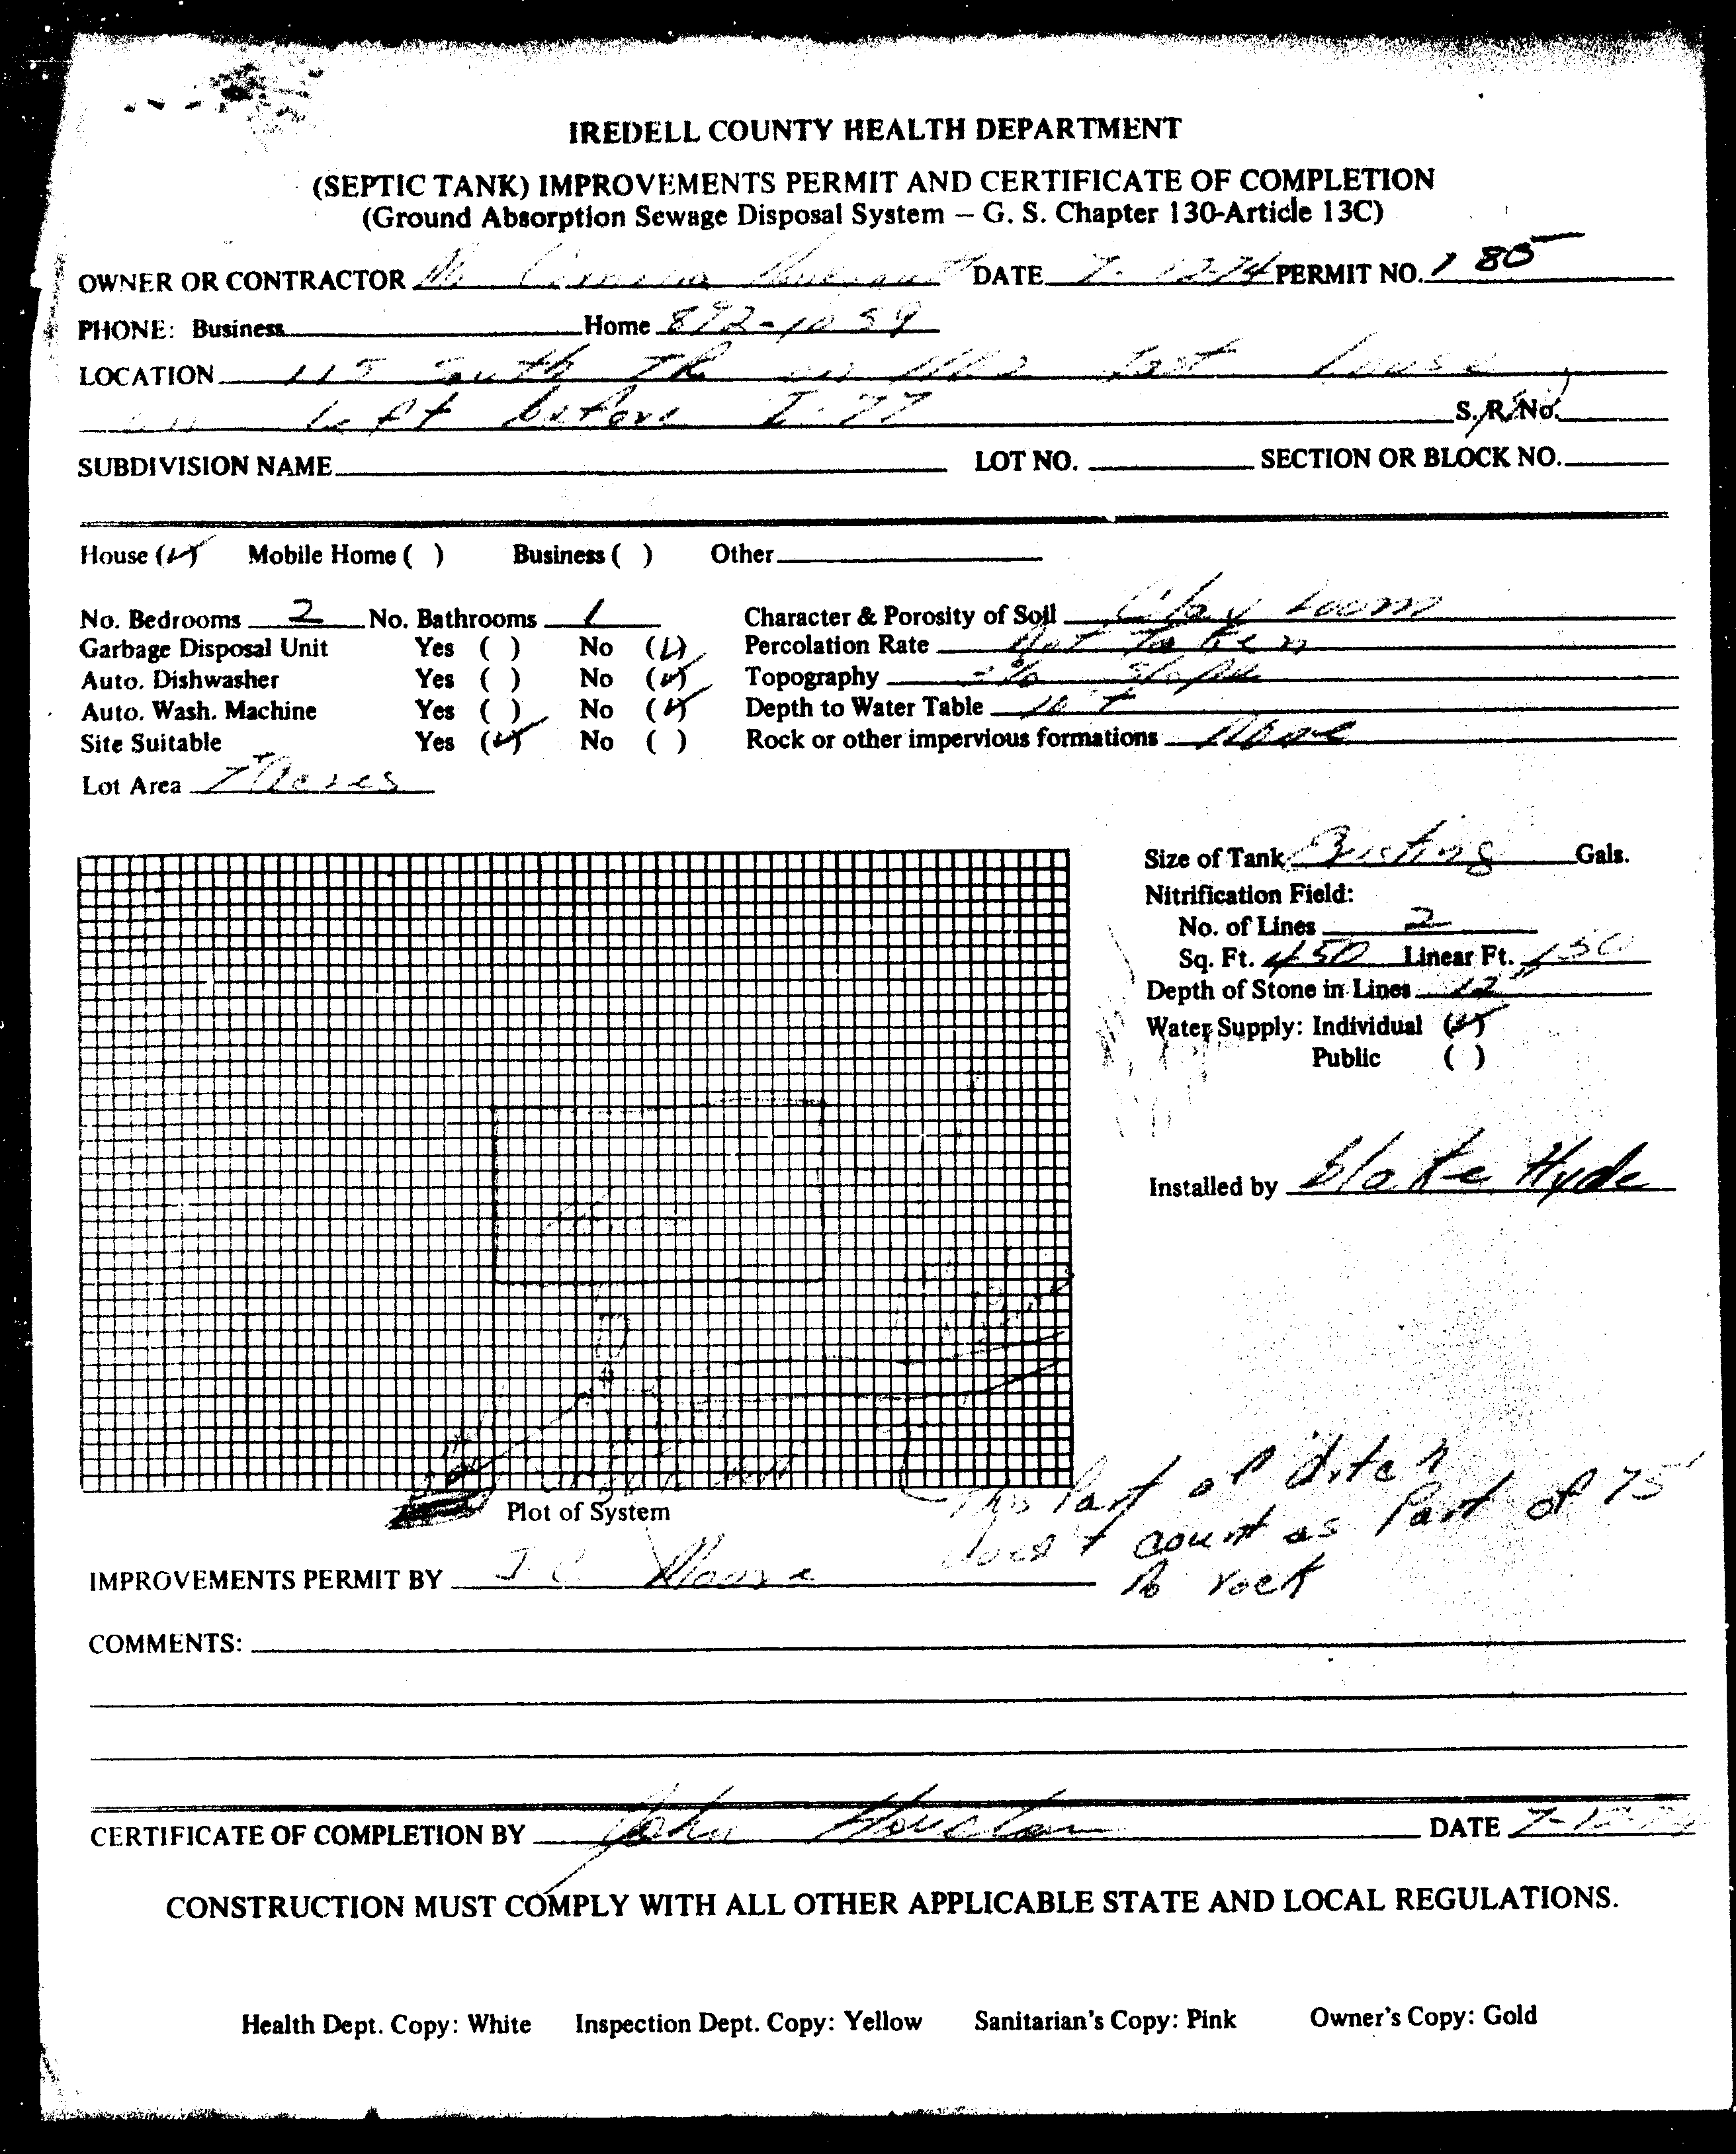 IREDELL COUNTY HEALTH DEPARTMENT
(SEPTIC TANK) IMPROVEMENTS PERMIT AND CERTIFICATE OF COMPLETION
(Ground Absorption Sewage Disposal System – G. S. Chapter 130-Article 13C)
OWNER OR CONTRACTOR DATE 7-12-74 PERMIT NO. 185
PHONE: Business Home 892-1059
LOCATION 115 South last house
left before I-77 S. R. No.
SUBDIVISION NAME LOT NO. SECTION OR BLOCK NO.
House (✓) Mobile Home ( ) Business ( ) Other
No. Bedrooms 2 No. Bathrooms 1 Character & Porosity of Soil Clay Loam
Garbage Disposal Unit Yes ( ) No (✓) Percolation Rate Not Taken
Auto. Dishwasher Yes ( ) No (✓) Topography slope
Auto. Wash. Machine Yes ( ) No (✓) Depth to Water Table 10 +
Site Suitable Yes (✓) No ( ) Rock or other impervious formations None
Lot Area Acres
Size of Tank Existing Gals.
Nitrification Field:
No. of Lines 2
Sq. Ft. 450 Linear Ft. 150
Depth of Stone in Lines 12"
Water Supply: Individual (✓)
Public ( )
Installed by Blake Hyde
This Part of ditch
Plot of System
doesn't count as Part of 75'
IMPROVEMENTS PERMIT BY J. C.
No rock
COMMENTS:
CERTIFICATE OF COMPLETION BY John Houston DATE 7-12-74
CONSTRUCTION MUST COMPLY WITH ALL OTHER APPLICABLE STATE AND LOCAL REGULATIONS.
Health Dept. Copy: White Inspection Dept. Copy: Yellow Sanitarian's Copy: Pink Owner's Copy: Gold